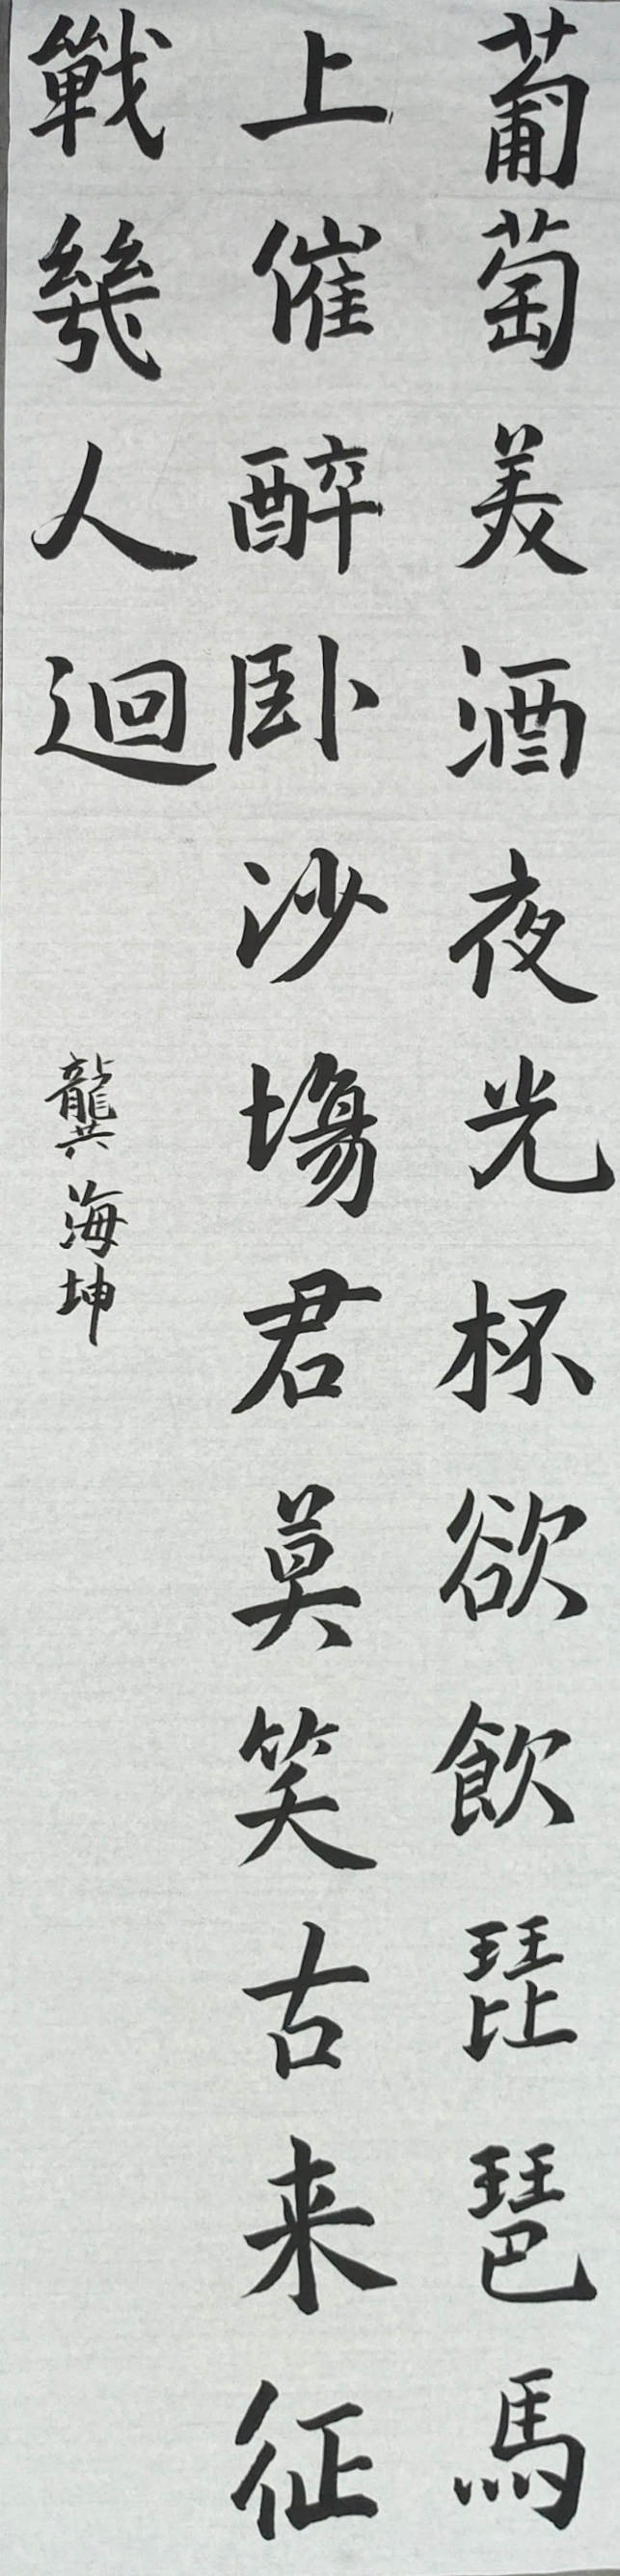 葡萄美酒夜光杯欲飲琵琶馬
上催醉卧沙塲君莫笑古来征
戰幾人迴
龔海坤